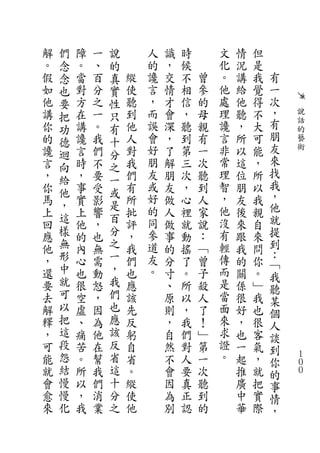 說話的藝術
有一次，有朋友來找我，他就提到：「我聽某個人談到你的事情，
但是我覺得不大可能，所以我親自來問你。」我也很客氣，就把實際
情況講給他聽，所以這位朋友後來跟我的關係很好，也一起推廣中華
文化。他處理讒言非常理智，他沒有輕傳而是當面來求證。
曾參的母親有一次聽到人家說：「曾子殺人了！」第一次聽到的
時候不相信，聽到第三次，心裡就動搖了。所以，我們對人要真正認
識，交情才會深，了解朋友做人做事的分寸、原則，自然不會因為別
人的讒言，而誤會好朋友或好的同參道友。
縱使聽到他人對我們有所批評，我們也應該先反躬自省。縱使他
說的真實性只有十分之一，或是百分之一，我們也應該反省這十分之
一、百分之一。我們不要受影響，也無需動怒，因為他在幫我們消業
障。當對方在講讒言時，事實上他的內心也很空虛、痛苦。所以，我
們念念也要把功德迴向給他，這樣無形中就可以把這段怨結慢慢化
解。假如他講你的讒言，你馬上回應他，還要去解釋，可能就會愈來
１００